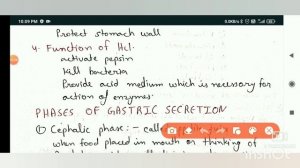 10:09 PM
Protect stomach wall
4. Function of Hcl.
activate pepsin
Kill bacteria
Provide acid medium which is necessary for
action of enzymes.
PHASES OF GASTRIC SECRETION
① Cephalic phase :- call
when food placed in mouth or thinking of